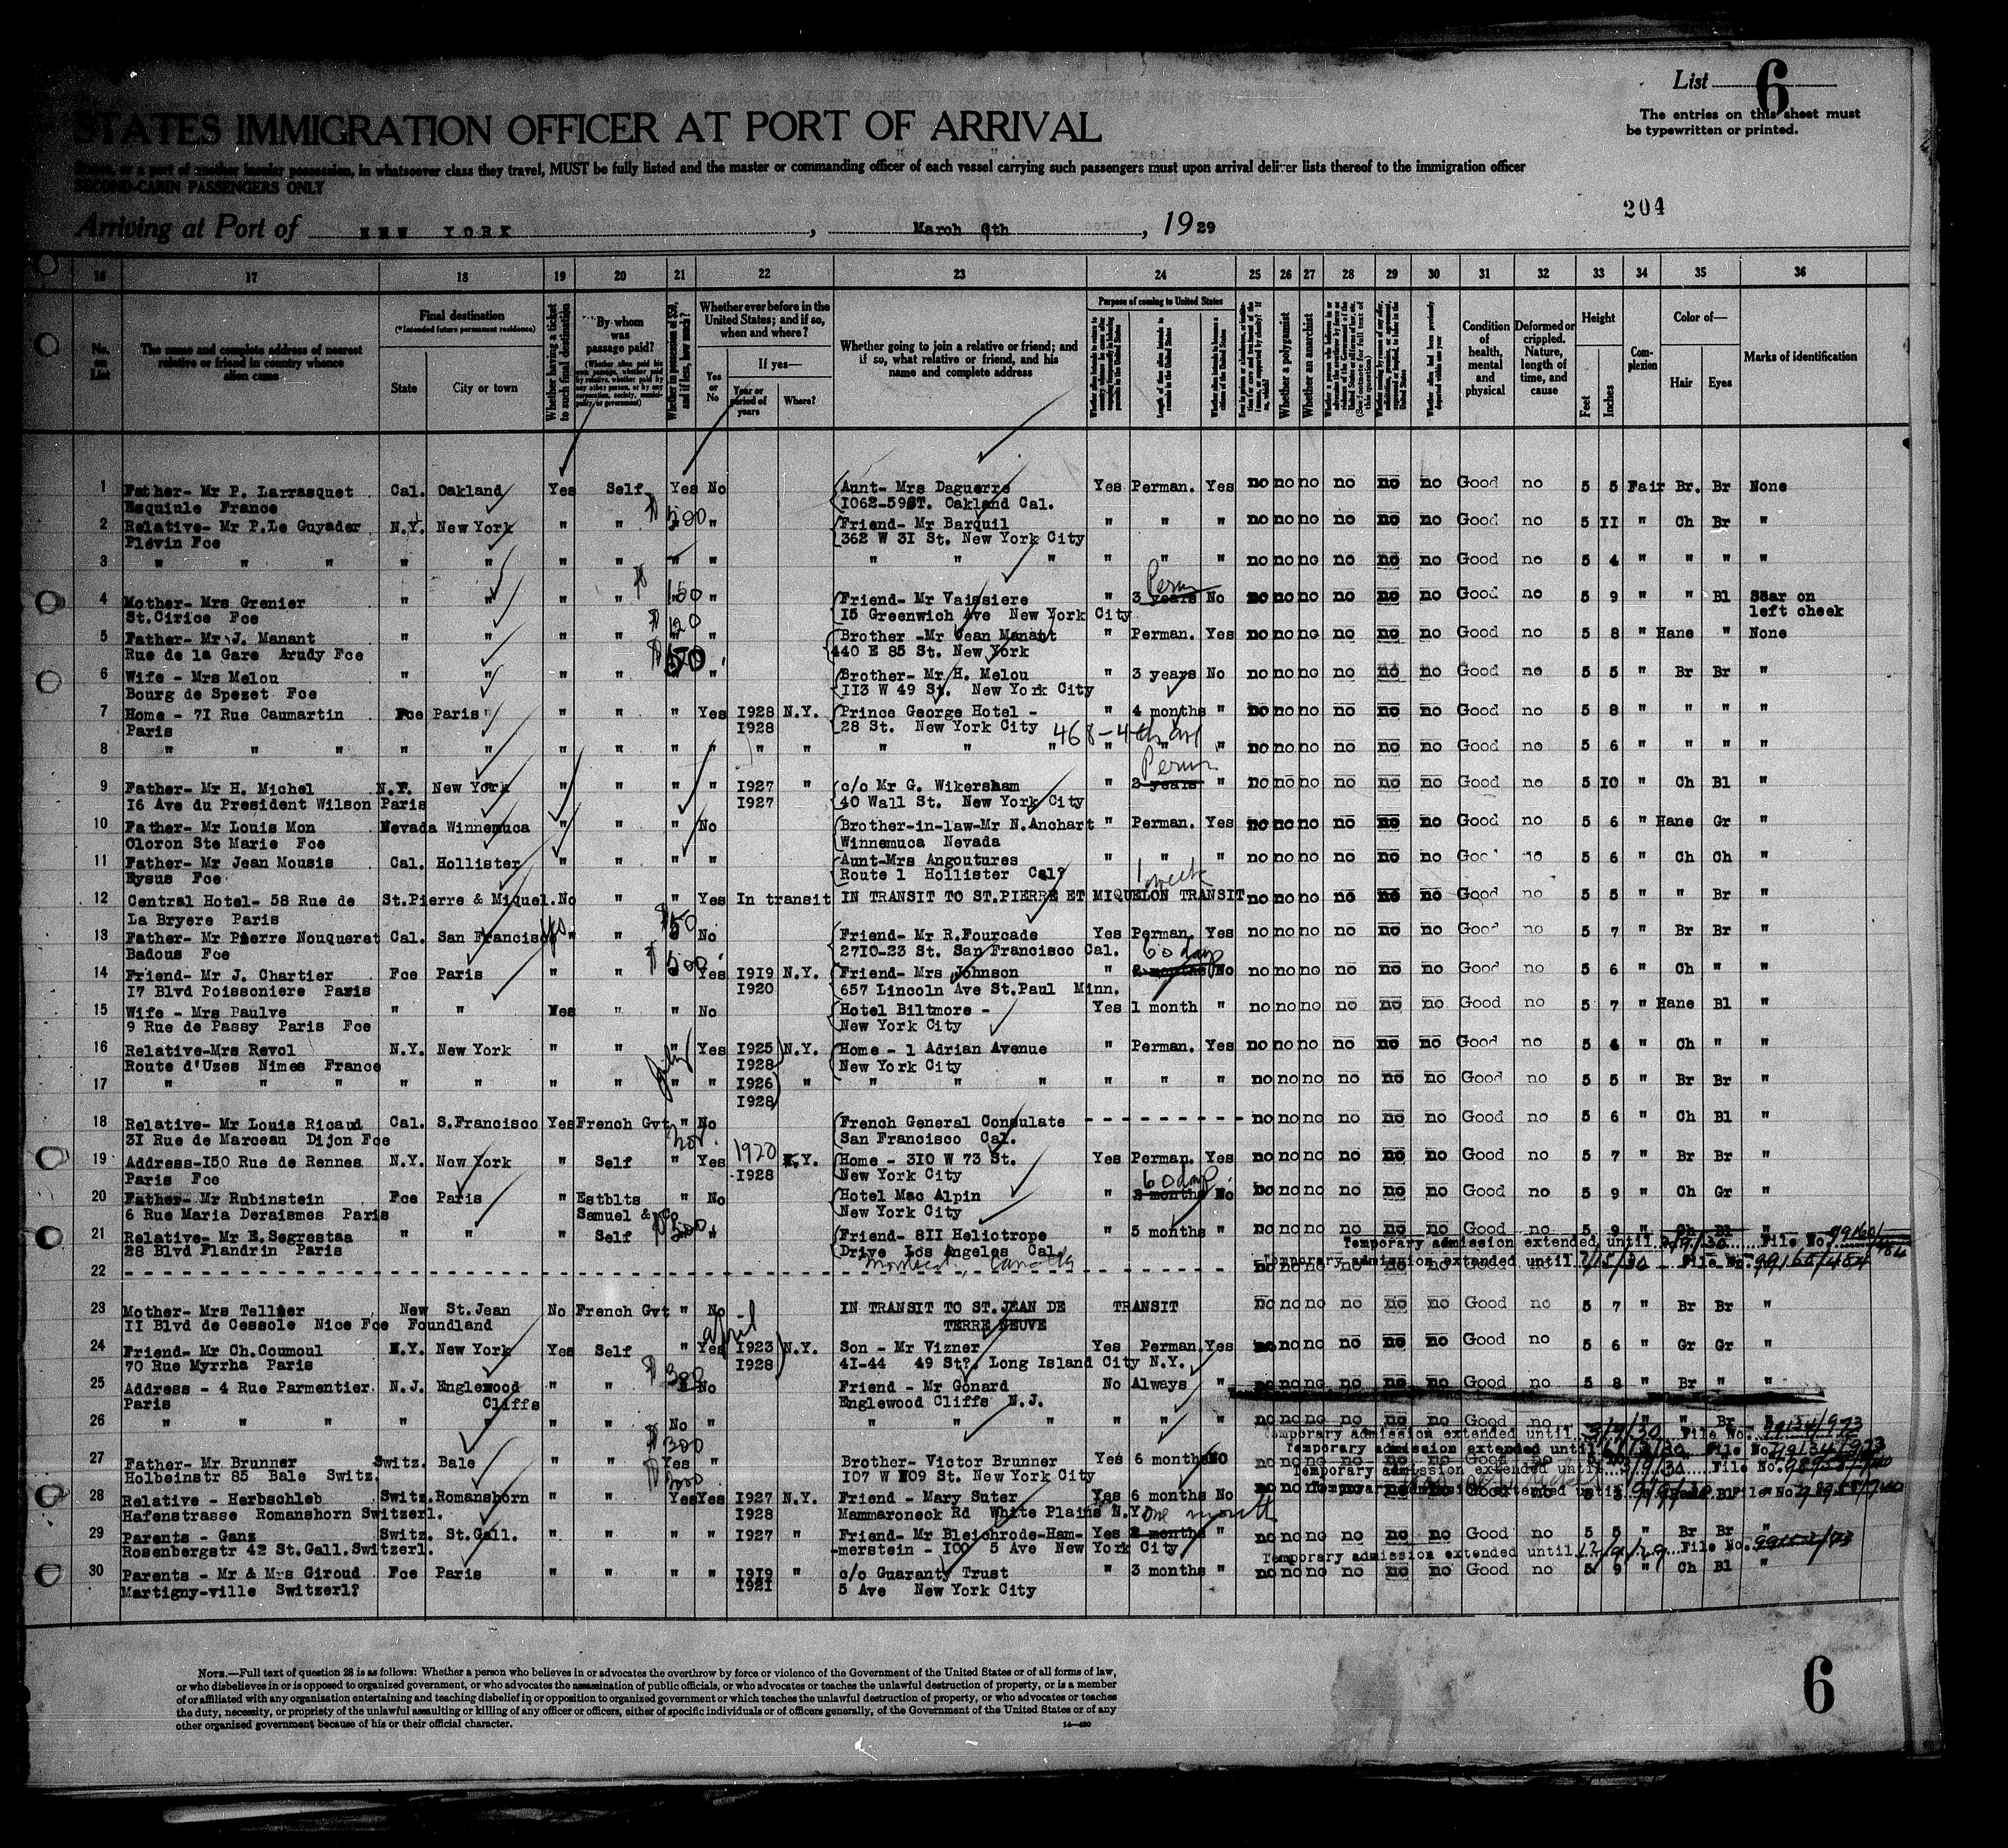 List 6
The entries on this sheet must
be typewritten or printed.
STATES IMMIGRATION OFFICER AT PORT OF ARRIVAL
possession, in whatsoever class they travel, MUST be fully listed and the master or commanding officer of each vessel carrying such passengers must upon arrival deliver lists thereof to the immigration officer
SECOND-CABIN PASSENGERS ONLY
204
Arriving at Port of NEW YORK, March 6th, 1929
16 17 18 19 20 21 22 23 24 25 26 27 28 29 30 31 32 33 34 35 36
No. on List
The name and complete address of nearest relative or friend in country whence alien came
Final destination
(*Intended future permanent residence)
State City or town
Whether having a ticket to such final destination
By whom was passage paid?
Whether in possession of $50, and if less, how much?
Whether ever before in the United States; and if so, when and where?
Yes or No
If yes—
Year or period of years Where?
Whether going to join a relative or friend; and if so, what relative or friend, and his name and complete address
Purpose of coming to United States
Length of time alien intends to remain in the United States
Whether a polygamist
Whether an anarchist
Condition of health, mental and physical
Deformed or crippled. Nature, length of time, and cause
Height
Feet Inches
Complexion
Color of—
Hair Eyes
Marks of identification
1 Father- Mr P. Larrasquet Cal. Oakland Yes Self Yes No Aunt- Mrs Daguerre Yes Perman. Yes no no no no no no Good no 5 5 Fair Br. Br None
Esquiule France 1062-59ST. Oakland Cal.
2 Relative- Mr P.Le Guyader N.Y. New York " " $200 " Friend- Mr Barquil " " " no no no no no no Good no 5 11 " Ch Br "
Plévin Fce 362 W 31 St. New York City
3 " " " " " " " " " " " " " " " no no no no no no Good no 5 4 " " " "
4 Mother- Mrs Grenier " " " " $150 " Friend- Mr Vaissiere " 3 years Perm No no no no no no no Good no 5 9 " " Bl Scar on
St.Cirice Fce 15 Greenwich Ave New York City left cheek
5 Father- Mr J. Manant " " " " $120 " Brother -Mr Jean Manant " Perman. Yes no no no no no no Good no 5 8 " Hane " None
Rue de la Gare Arudy Fce 440 E 85 St. New York
6 Wife - Mrs Melou " " " " " Brother- Mr H. Melou " 3 years No no no no no no no Good no 5 5 " Br Br "
Bourg de Spezet Fce 113 W 49 St. New York City
7 Home - 71 Rue Caumartin Fce Paris " " " Yes 1928 N.Y. Prince George Hotel - " 4 months " no no no no no no Good no 5 8 " " " "
Paris 1928 28 St. New York City
468-4th av
8 " " " " " " " " " " " " " " " " " no no no no no no Good no 5 6 " " " "
9 Father- Mr H. Michel N.Y. New York " " " " 1927 " c/o Mr G. Wikersham " 2 years Perm " no no no no no no Good no 5 10 " Ch Bl "
16 Ave du President Wilson Paris 1927 40 Wall St. New York City
10 Father- Mr Louis Mon Nevada Winnemuca " " " No Brother-in-law-Mr N.Anchart " Perman. Yes no no no no no no Good no 5 6 " Hane Gr "
Oloron Ste Marie Fce Winnemuca Nevada
11 Father- Mr Jean Mousis Cal. Hollister " " " " Aunt-Mrs Angoutures " " " no no no no no no Good no 5 6 " Ch Ch "
Eysus Fce Route 1 Hollister Cal?
1 week
12 Central Hotel- 58 Rue de St.Pierre & Miquel. No " " Yes In transit IN TRANSIT TO ST.PIERRE ET MIQUELON TRANSIT no no no no no no Good no 5 5 " " Br "
La Bryere Paris
13 Father- Mr Pierre Nouqueret Cal. San Francisco " yes " $50 No Friend- Mr R.Fourcade Yes Perman. Yes no no no no no no Good no 5 7 " Br Br "
Badous Fce 2710-23 St. San Francisco Cal.
14 Friend- Mr J. Chartier Fce Paris " " $500 Yes 1919 N.Y. Friend- Mrs Johnson " 2 months 60 days No no no no no no no Good no 5 6 " Ch " "
17 Blvd Poissoniere Paris 1920 657 Lincoln Ave St.Paul Minn.
15 Wife - Mrs Paulve " " Yes " " No Hotel Biltmore - Yes 1 month " no no no no no no Good no 5 7 " Hane Bl "
9 Rue de Passy Paris Fce New York City
16 Relative-Mrs Revol N.Y. New York " " " Yes 1925 N.Y. Home - 1 Adrian Avenue " Perman. Yes no no no no no no Good no 5 " Ch " "
Route d'Uzes Nimes France 1928 New York City
17 " " " " " " " July " " 1926 " " " " " " " no no no no no no Good no 5 5 " Br Br "
1928
18 Relative- Mr Louis Ricaud Cal. S.Francisco Yes French Gvt " No French General Consulate - - - - - no no no no no no Good no 5 6 " Ch Bl "
31 Rue de Marceau Dijon Fce San Francisco Cal.
19 Address-150 Rue de Rennes N.Y. New York " Self " Nov. Yes 1920 N.Y. Home - 310 W 73 St. Yes Perman. Yes no no no no no no Good no 5 7 " Br Br "
Paris Fce 1928 New York City
20 Father- Mr Rubinstein Fce Paris " Estblts " No Hotel Mac Alpin " 3 months 60 days No no no no no no no Good no 5 9 " Ch Gr "
6 Rue Maria Deraismes Paris Samuel & Co New York City
21 Relative- Mr E.Segrestaa " " " Self $500 " Friend- 811 Heliotrope " 5 months " no no no no no no Good no 5 9 " Ch Bl "
28 Blvd Flandrin Paris Drive Los Angeles Cal.
Montreal, Canada
Temporary admission extended until File No.
22 - - - - - Temporary admission extended until File No. 99165/484
23 Mother- Mrs Tellier New St.Jean No French Gvt " No IN TRANSIT TO ST.JEAN DE TRANSIT no no no no no no Good no 5 7 " Br Br "
11 Blvd de Cessole Nice Fce Foundland TERRE NEUVE
24 Friend- Mr Ch.Coumoul N.Y. New York Yes Self " Yes April 1923 N.Y. Son - Mr Vizner Yes Perman. Yes no no no no no no Good no 5 6 " Gr Gr "
70 Rue Myrrha Paris 1928 41-44 49 St?. Long Island City N.Y.
25 Address - 4 Rue Parmentier N.J. Englewood " " $300 No Friend - Mr Gonard No Always " no no no no no no Good no 5 8 " Br " "
Paris Cliffs Englewood Cliffs N.J.
26 " " " " " " " No " " " " " " " no no no no no no Good no " " Br "
Temporary admission extended until 3/9/30 File No. 99134/973
Temporary admission extended until File No. 99134/973
27 Father- Mr Brunner Switz. Bale " " $300 Yes " Brother- Victor Brunner Yes 6 months NO no no no no no no Good no
Holbeinstr 85 Bale Switz. 107 W 109 St. New York City
Temporary admission extended until 3/9/30 File No.
28 Relative - Herbschleb Switz. Romanshorn " " $200 Yes Yes 1927 N.Y. Friend - Mary Suter Yes 6 months No no no no no no no Good no
Hafenstrasse Romanshorn Switzerl. 1928 Mammaroneck Rd White Plains N.Y.
Temporary admission extended until File No.
one month
29 Parents - Ganz Switz. St.Gall. " " " " 1927 " Friend- Mr Bleichrode-Ham- Yes 2 months " no no no no no no Good no 5 5 " Br Br "
Rosenbergstr 42 St.Gall.Switzerl. -merstein - 100 5 Ave New York City
Temporary admission extended until 12/9/29 File No.
30 Parents - Mr & Mrs Giroud Fce Paris " " " " 1919 " c/o Guaranty Trust " 3 months " no no no no no no Good no 5 9 " Ch Bl "
Martigny-ville Switzerl? 1921 5 Ave New York City
NOTE.—Full text of question 28 is as follows: Whether a person who believes in or advocates the overthrow by force or violence of the Government of the United States or of all forms of law,
or who disbelieves in or is opposed to organized government, or who advocates the assassination of public officials, or who advocates or teaches the unlawful destruction of property, or is a member
of or affiliated with any organization entertaining and teaching disbelief in or opposition to organized government or which teaches the unlawful destruction of property, or who advocates or teaches
the duty, necessity, or propriety of the unlawful assaulting or killing of any officer or officers, either of specific individuals or of officers generally, of the Government of the United States or of any
other organized government because of his or their official character.
14—430
6